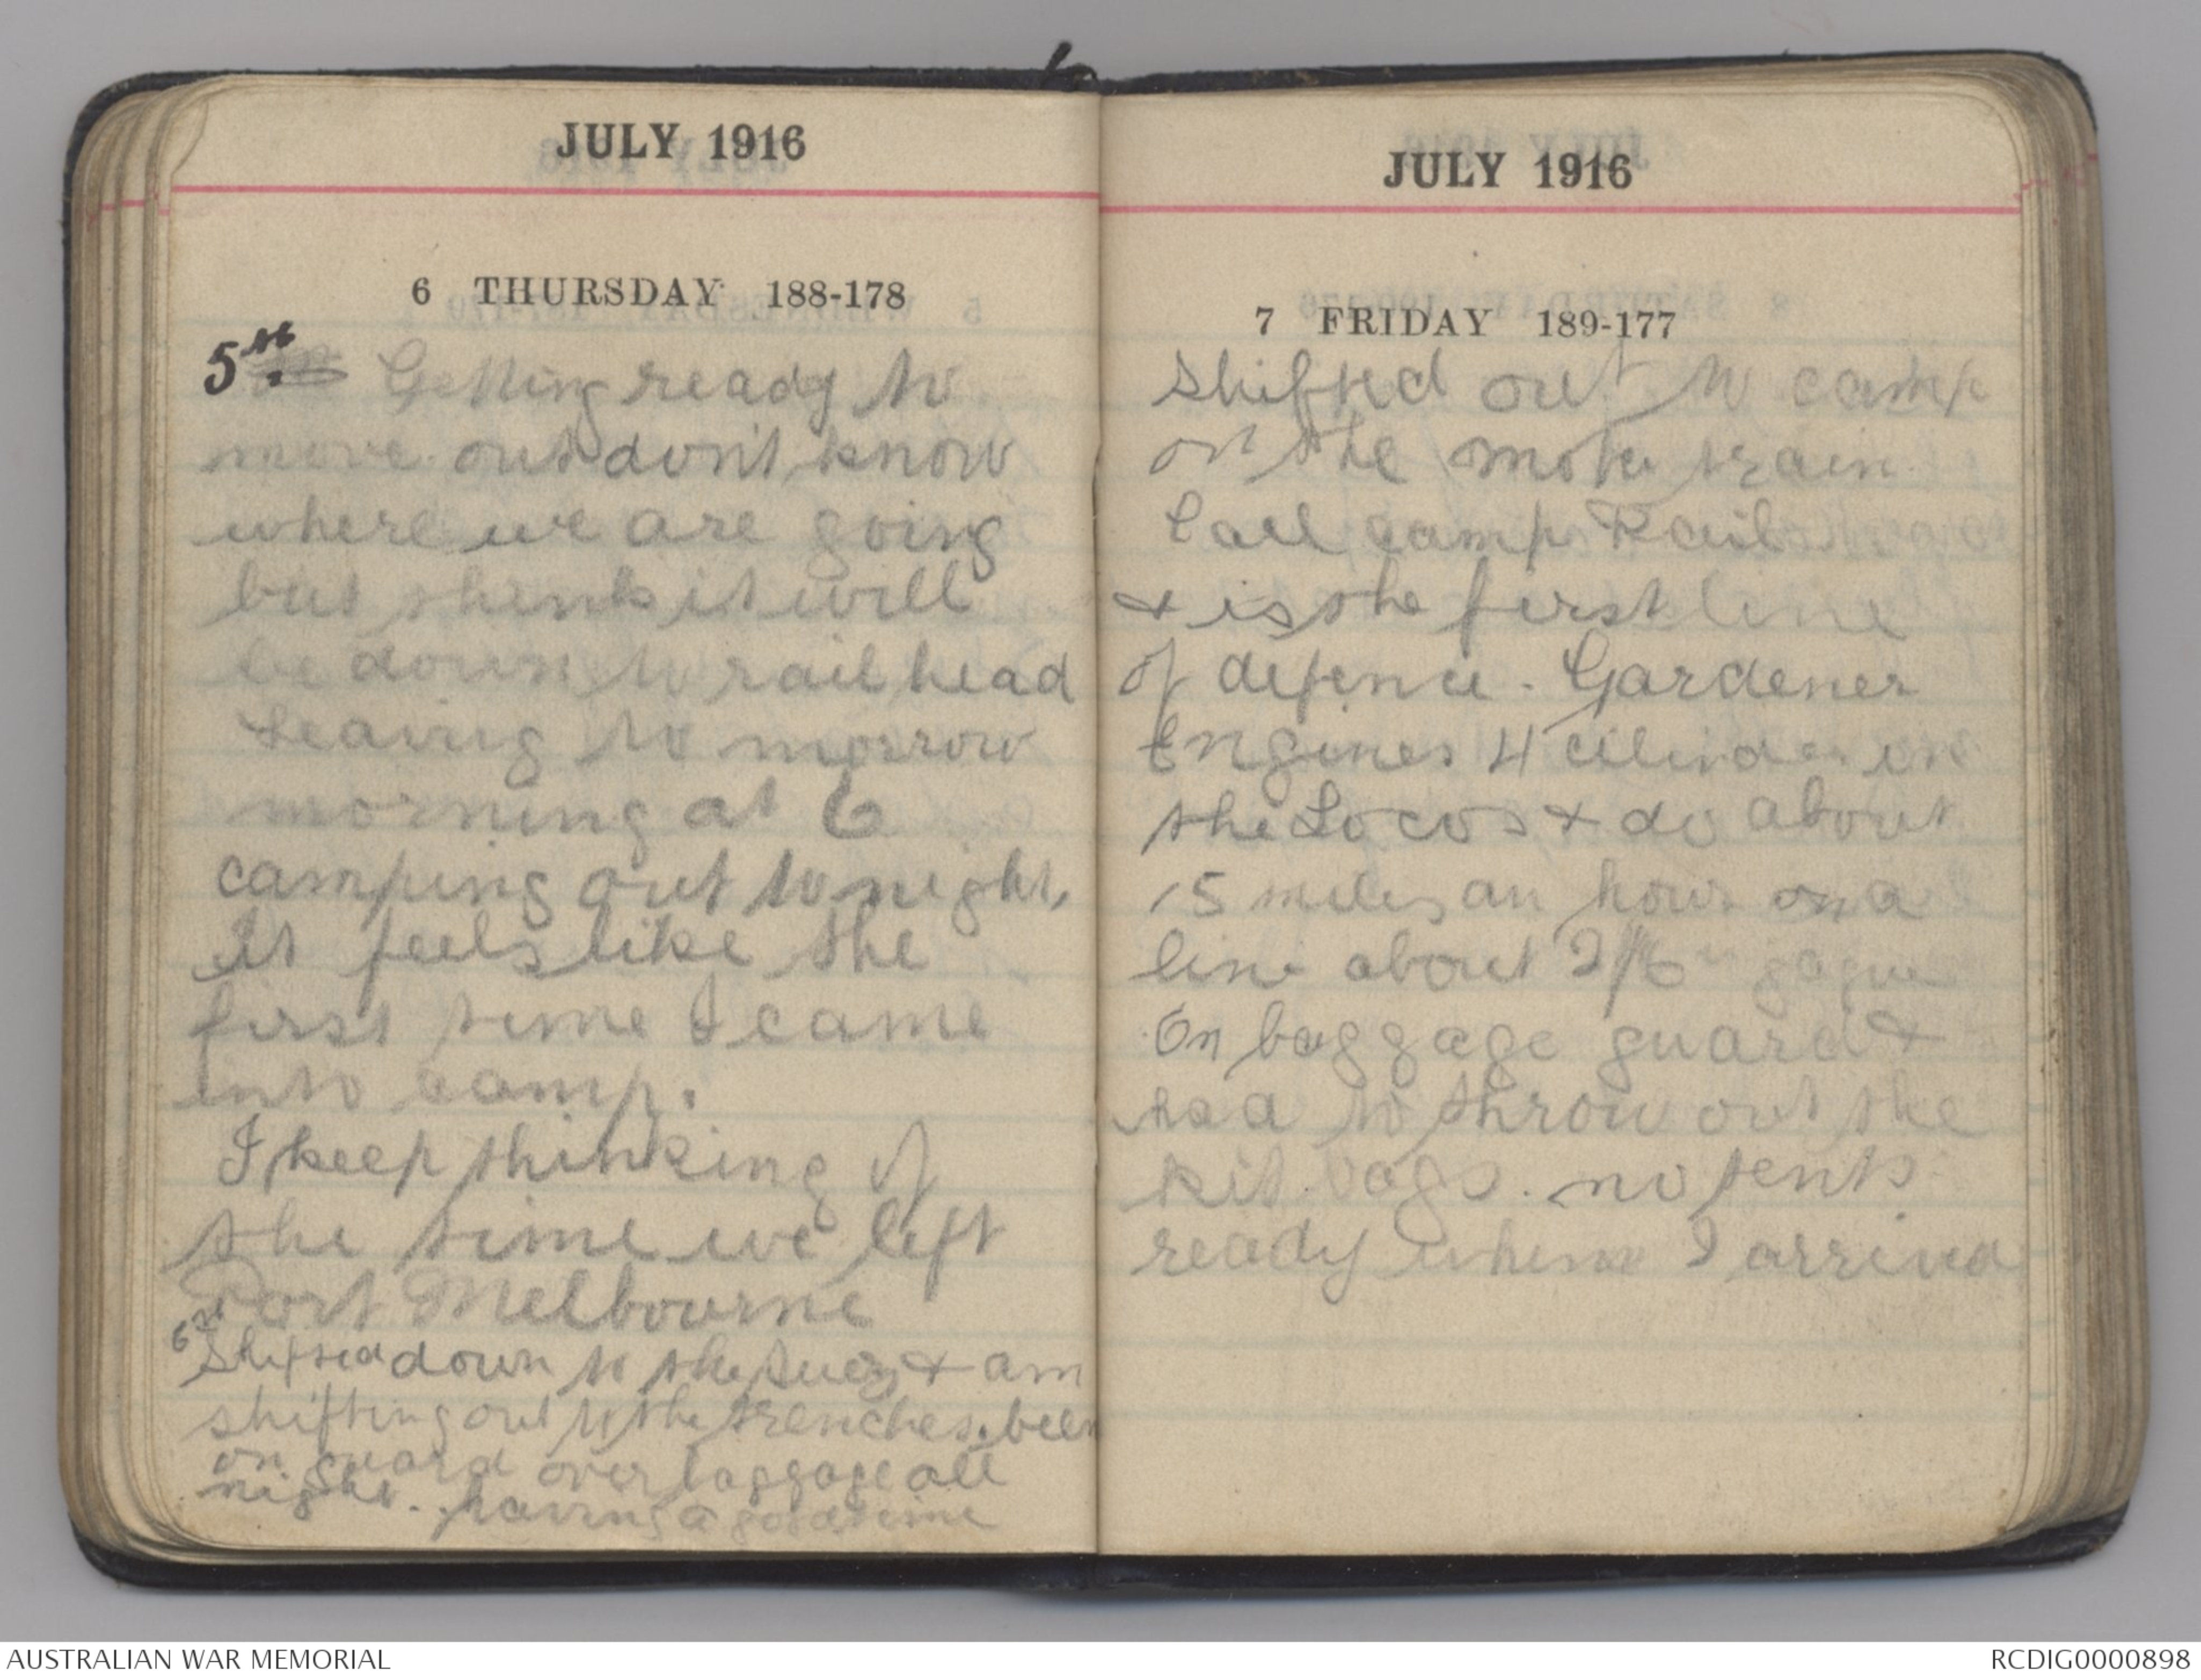 JULY 1916
6 THURSDAY 188-178
5th. Getting ready to
move out don't know
where we are going
but think it will
be down to rail head
Leaving to morrow
morning at 6
camping out to night,
It feels like the
first time I came
into camp.
I keep thinking of
the time we left
Port Melbourne
6th
Shifted down to the Suez & am
shifting out to the trenches. been
on guard over baggage all
night. having a good time
JULY 1916
7 FRIDAY 189-177
Shifted out to camp
on the moter train
Call camp Rail
& is the first line
of defence. Gardener
Engines 4 cilinder in
the Locos & do about
15 miles an hour on a
line about 2/6" gague
On baggage guard &
had to throw out the
kit bags. no tents
ready when I arrived
AUSTRALIAN WAR MEMORIAL
RCDIG0000898